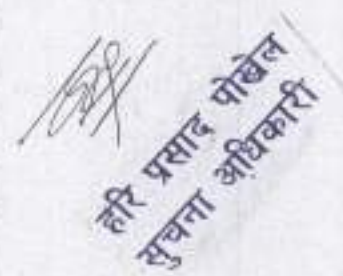 हरि प्रसाद पोखेल
सुचना अधिकारी